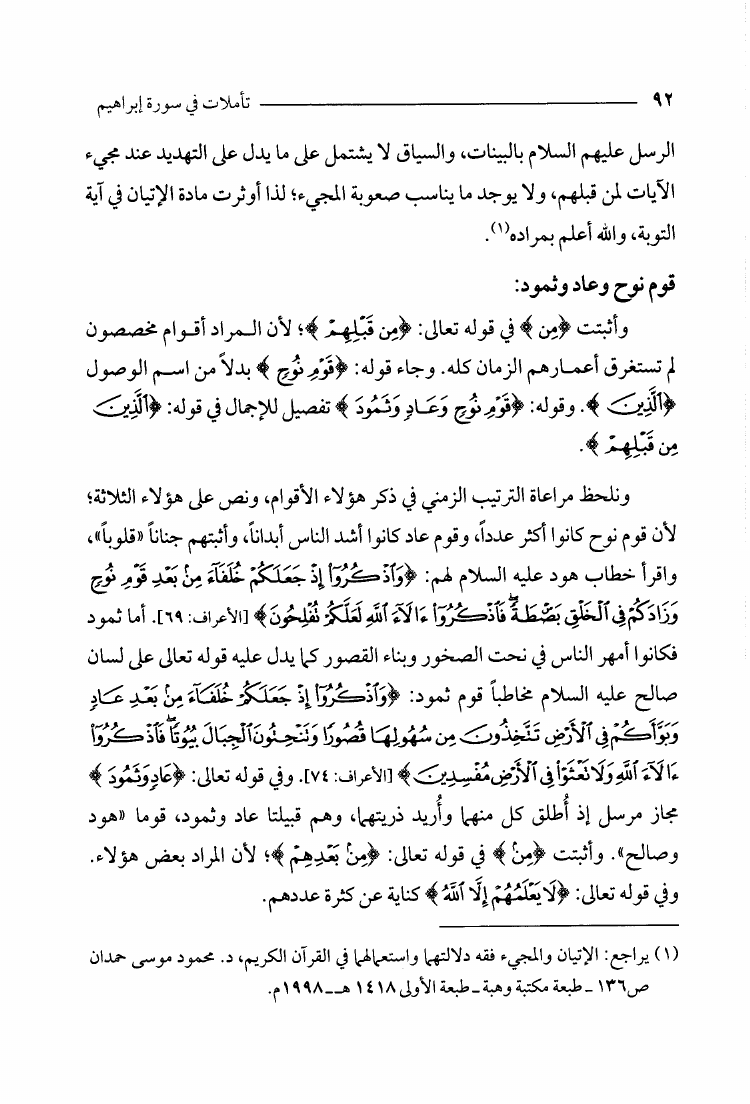 ٩٢ تأملات في سورة إبراهيم
الرسل عليهم السلام بالبينات، والسياق لا يشتمل على ما يدل على التهديد عند مجيء
الآيات لمن قبلهم، ولا يوجد ما يناسب صعوبة المجيء؛ لذا أوثرت مادة الإتيان في آية
التوبة، والله أعلم بمراده(١).
قوم نوح وعاد وثمود:
وأثبتت ﴿مِن﴾ في قوله تعالى: ﴿مِن قَبْلِهِمْ﴾؛ لأن الـمراد أقـوام مخصصون
لم تستغرق أعمـارهم الزمان كله. وجاء قوله: ﴿قَوْمِ نُوحٍ﴾ بدلاً من اسـم الوصول
﴿ٱلَّذِينَ﴾. وقوله: ﴿قَوْمِ نُوحٍ وَعَادٍ وَثَمُودَ﴾ تفصيل للإجمال في قوله: ﴿ٱلَّذِينَ
مِن قَبْلِهِمْ﴾.
ونلحظ مراعاة الترتيب الزمني في ذكر هؤلاء الأقوام، ونص على هؤلاء الثلاثة؛
لأن قوم نوح كانوا أكثر عدداً، وقوم عاد كانوا أشد الناس أبداناً، وأثبتهم جناناً «قلوباً»،
واقرأ خطاب هود عليه السلام لهم: ﴿وَٱذْكُرُوٓا۟ إِذْ جَعَلَكُمْ خُلَفَآءَ مِنۢ بَعْدِ قَوْمِ نُوحٍ
وَزَادَكُمْ فِى ٱلْخَلْقِ بَصْۜطَةً ۖ فَٱذْكُرُوٓا۟ ءَالَآءَ ٱللَّهِ لَعَلَّكُمْ تُفْلِحُونَ﴾ [الأعراف: ٦٩]. أما ثمود
فكانوا أمهر الناس في نحت الصخور وبناء القصور كما يدل عليه قوله تعالى على لسان
صالح عليه السلام مخاطباً قوم ثمود: ﴿وَٱذْكُرُوٓا۟ إِذْ جَعَلَكُمْ خُلَفَآءَ مِنۢ بَعْدِ عَادٍ
وَبَوَّأَكُمْ فِى ٱلْأَرْضِ تَتَّخِذُونَ مِن سُهُولِهَا قُصُورًا وَتَنْحِتُونَ ٱلْجِبَالَ بُيُوتًا ۖ فَٱذْكُرُوٓا۟
ءَالَآءَ ٱللَّهِ وَلَا تَعْثَوْا۟ فِى ٱلْأَرْضِ مُفْسِدِينَ﴾ [الأعراف: ٧٤]. وفي قوله تعالى: ﴿عَادٍ وَثَمُودَ﴾
مجاز مرسل إذ أُطلق كل منهما وأُريد ذريتهما، وهم قبيلتا عاد وثمود، قوما «هود
وصالح». وأثبتت ﴿مِنۢ﴾ في قوله تعالى: ﴿مِنۢ بَعْدِهِمْ﴾؛ لأن المراد بعض هؤلاء.
وفي قوله تعالى: ﴿لَا يَعْلَمُهُمْ إِلَّا ٱللَّهُ﴾ كناية عن كثرة عددهم.
(١) يراجع: الإتيان والمجيء فقه دلالتهما واستعمالهما في القرآن الكريم، د. محمود موسى حمدان
ص١٣٦ ـ طبعة مكتبة وهبة ـ طبعة الأولى ١٤١٨ هـــ١٩٩٨م.